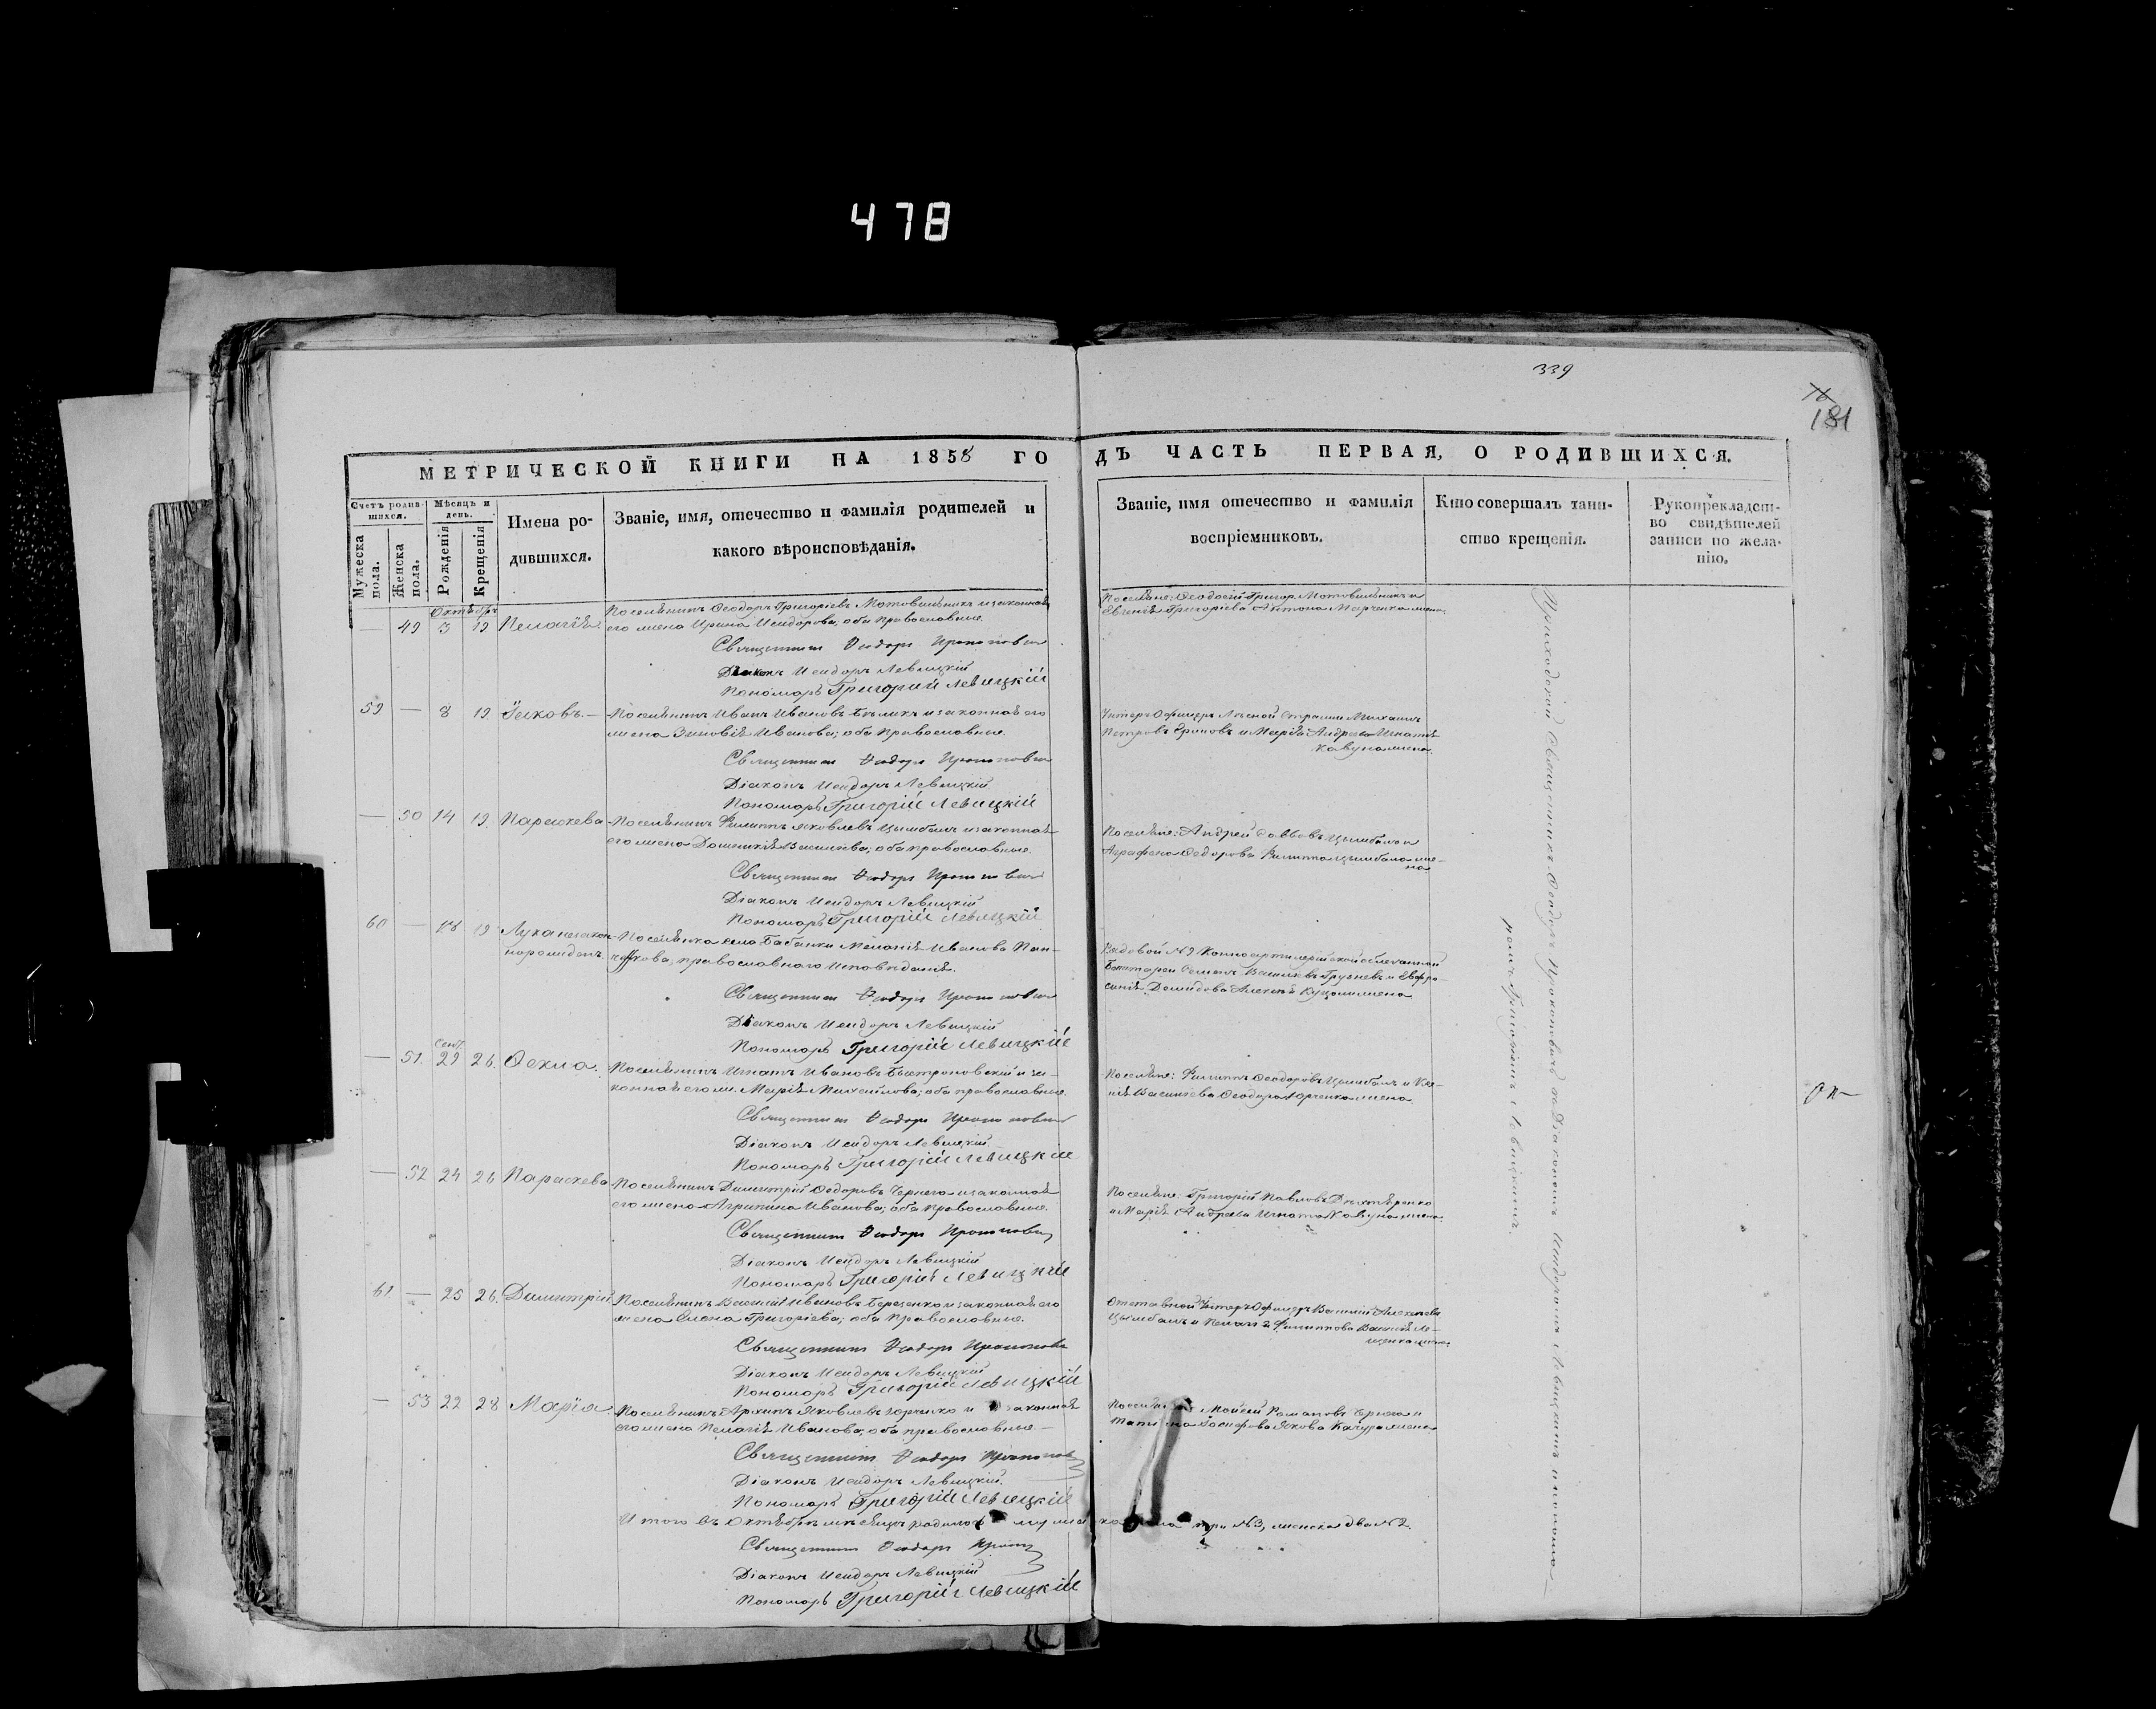 478
339
16
181
МЕТРИЧЕСКОЙ КНИГИ НА 1858 ГОДЪ ЧАСТЬ ПЕРВАЯ, О РОДИВШИХСЯ.
Счетъ родившихся.
Мужеска пола.
Женска пола.
Мѣсяцъ и день.
Рожденія
Крещенія
Имена родившихся.
Званіе, имя, отечество и фамилія родителей и
какого вѣроисповѣданія.
Званіе, имя отечество и фамилія
воспріемниковъ.
Кто совершалъ таинство крещенія.
Рукоприкладство свидѣтелей записи по желанію.
Октябрь
— 49 3 19 Пелагія.
Поселянинъ Ѳеодоръ Григоріевъ Мотовильникъ и законная
его жена Ирина Исидорова, оба православные.
Священникъ Ѳеодоръ Прокоповичъ
Діаконъ Исидоръ Левицкій
Пономарь Григорій Левицкій
Поселяне: Ѳеодосій Григор. Мотовильникъ и
Евгенія Григоріева Антона Марченка жена.
59 — 8 19 Іаковъ. —
Поселянинъ Иванъ Ивановъ Бѣликъ и законная его
жена Зиновія Иванова; оба православные.
Священникъ Ѳеодоръ Прокоповичъ
Діаконъ Исидоръ Левицкій
Пономарь Григорій Левицкій
Унтеръ Офицеръ Лѣсной Стражи Михаилъ
Петровъ и Марія Андреева Игнатія
Кавуна жена.
— 50 14 19 Параскева
Поселянинъ Филиппъ Яковлевъ Цымбалъ и законная
его жена Домникія Васильева; оба православные.
Священникъ Ѳеодоръ Прокоповичъ
Діаконъ Исидоръ Левицкій
Пономарь Григорій Левицкій
Поселяне: Андрей Савовъ Цымбалъ и
Аграфена Ѳедорова Филиппа Цымбала жена
60 — 18 19 Лука незаконнорожденъ.
Поселянка села Бабанки Меланія Иванова
православнаго исповѣданія.
Священникъ Ѳеодоръ Прокоповичъ
Діаконъ Исидоръ Левицкій
Пономарь Григорій Левицкій
Рядовой №9 Конноартиллерійской облегчанной
Баттареи Семенъ Васильевъ Грузневъ и Евфросинія Демидова Алексѣя жена
Сент.
— 51. 29 26. Ѳекла.
Поселянинъ Игнатъ Ивановъ Быстроновскій и законная его ж. Марія Михайлова; оба православные.
Священникъ Ѳеодоръ Прокоповичъ
Діаконъ Исидоръ Левицкій
Пономарь Григорій Левицкій
Поселяне: Филиппъ Ѳеодоровъ Цымбалъ и Ксенія Васильева Ѳеодора Юрченка жена
— 52 24 26 Параскева
Поселянинъ Димитрій Ѳедоровъ Чернега и законная
его жена Агрипина Иванова; оба православные.
Священникъ Ѳеодоръ Прокоповичъ
Діаконъ Исидоръ Левицкій
Пономарь Григорій Левицкій
Поселяне: Григорій Павловъ Дихтяренко
и Марія Андреева Игната Кавуна жена
61 — 25 26. Димитрій
Поселянинъ Василій Ивановъ Березенко и законная его
жена Елена Григоріева; оба православные.
Священникъ Ѳеодоръ Прокоповичъ
Діаконъ Исидоръ Левицкій
Пономарь Григорій Левицкій
Отставной Унтеръ Офицеръ Василій Алексѣевъ
Цымбалъ и Пелагія Филиппова Василія
жена
— 53 22 28 Марія
Поселянинъ Архипъ Яковлевъ Юрченко и законная
его жена Пелагія Иванова, оба православные. —
Священникъ Ѳеодоръ Прокоповичъ
Діаконъ Исидоръ Левицкій
Пономарь Григорій Левицкій
Моисей Романовъ Чернега и
Іосифова Якова Качура жена
Итого въ Октябрѣ мѣсяцѣ родилось три №3, женска два №2.
Священникъ Ѳеодоръ Прокоп
Діаконъ Исидоръ Левицкій
Пономарь Григорій Левицкій
Приходскій Священникъ Ѳеодоръ Прокоповичъ съ Діакономъ Исидоромъ Левицкимъ и пономаремъ Григоріемъ Левицкимъ.